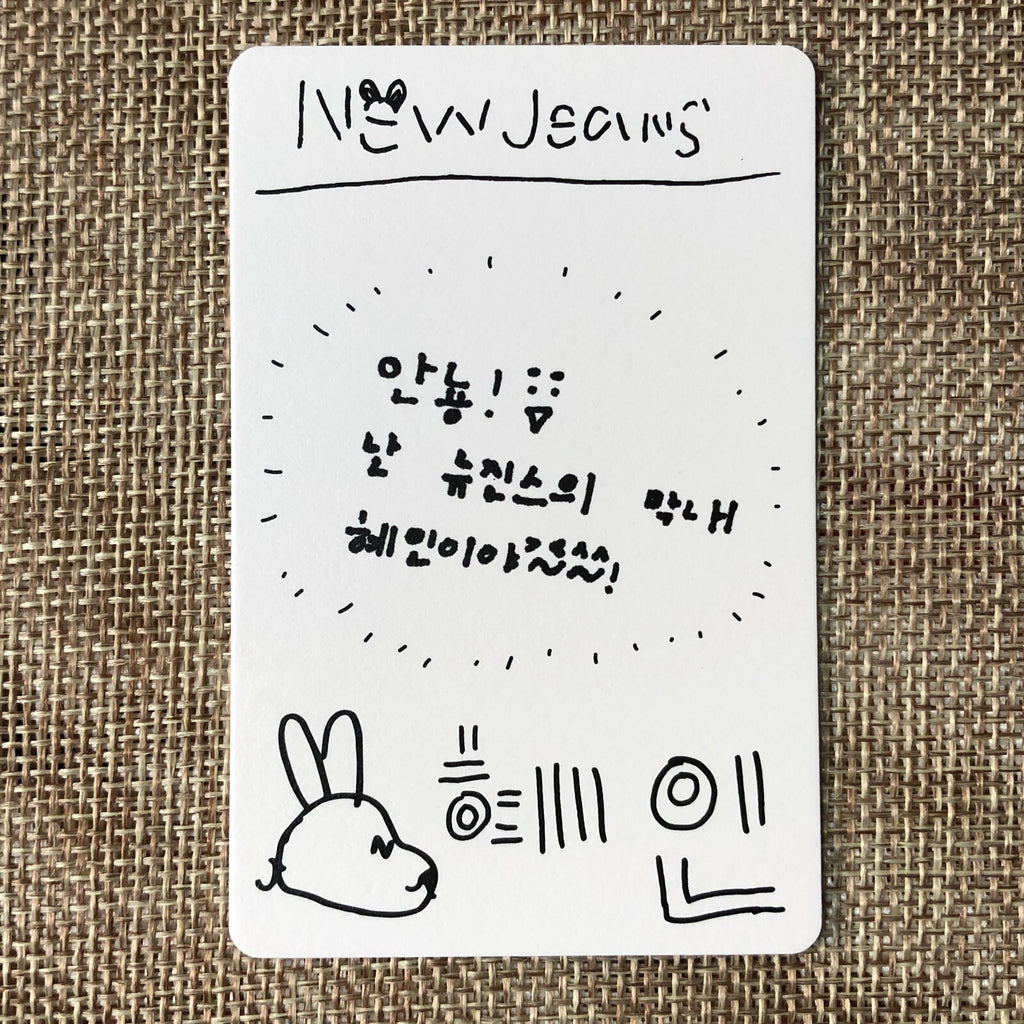 NEW Jeans
안뇽! ::
난 뉴진스의 막내
혜인이야>< ^^~~!
혜인